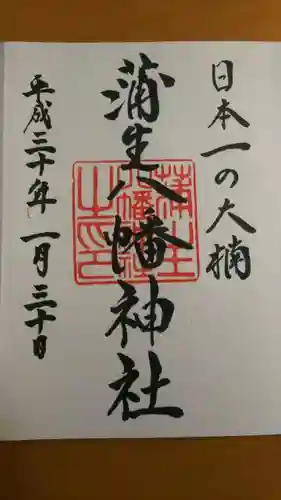 日本一の大楠
蒲生八幡神社
平成三十年 一月三十日
蒲生八幡神社之印